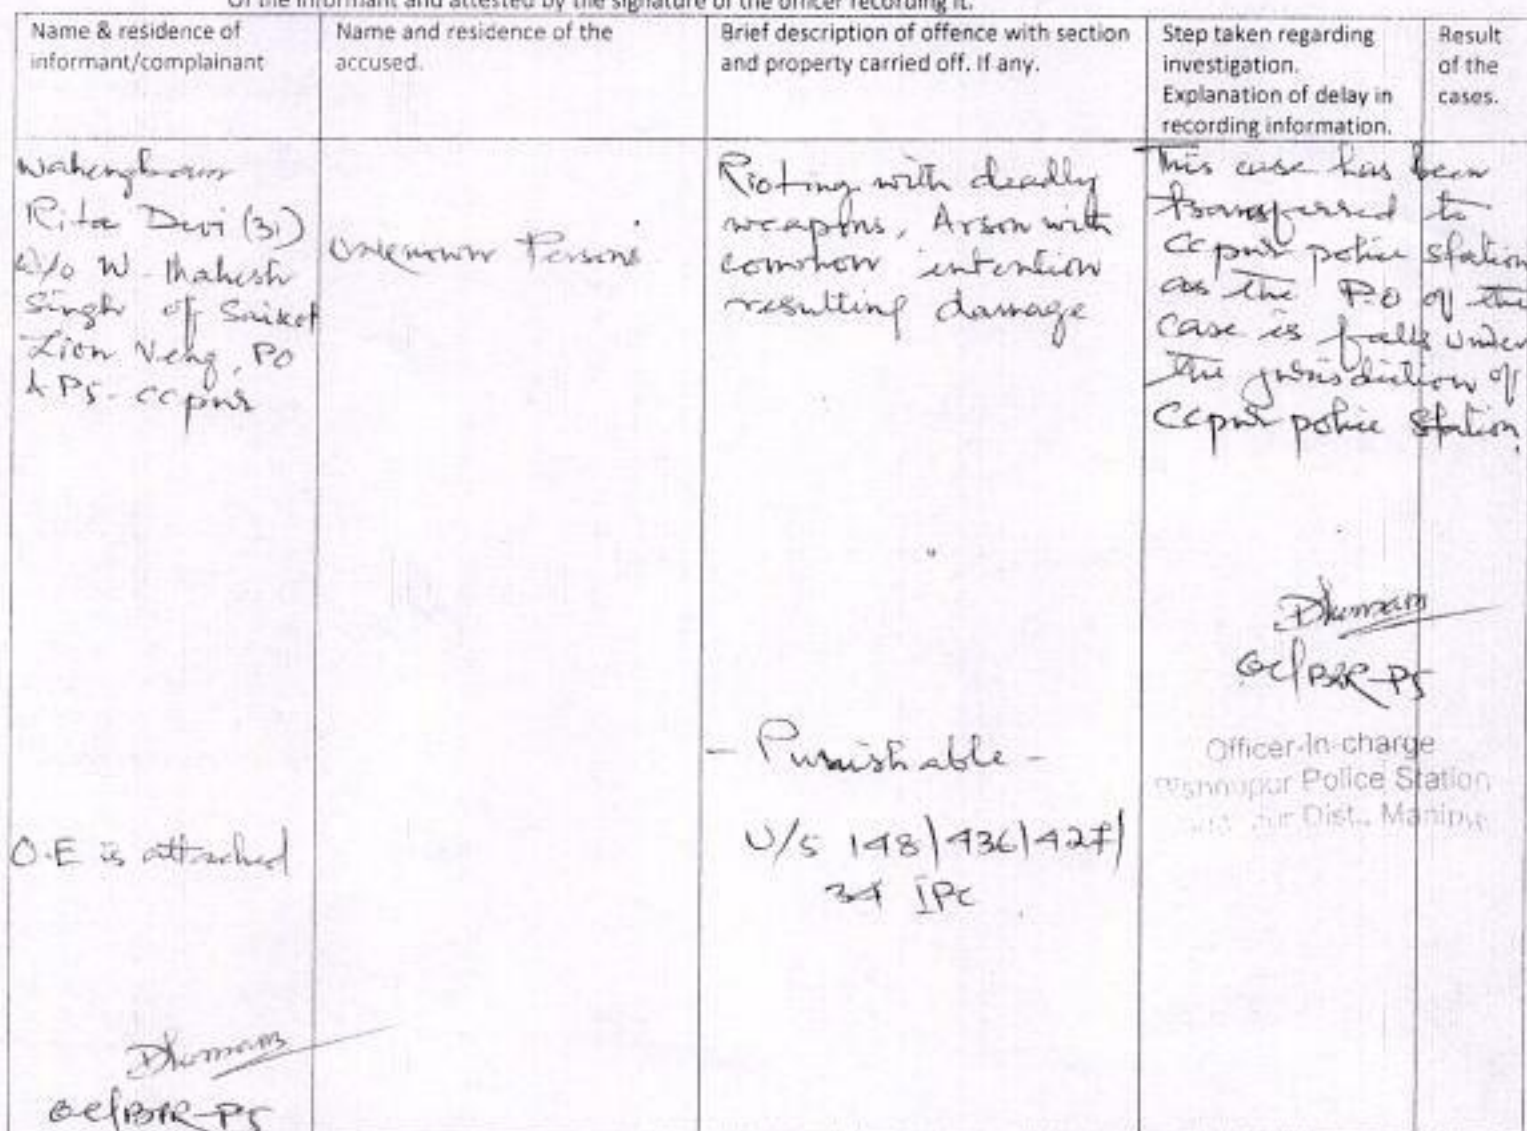 Of the informant and attested by the signature of the officer recording it.
Name & residence of
informant/complainant
Name and residence of the
accused.
Brief description of offence with section
and property carried off. If any.
Step taken regarding
investigation.
Explanation of delay in
recording information.
Result
of the
cases.
Rita Devi (31)
W/o W. Mahesh
Singh of Saikot
Lion Veng, PO
& PS- CCpur
O.E is attached
OC/BPR-PS
Unknown Persons
Rioting with deadly
weapons, Arson with
common intention
resulting damage
- Punishable -
U/S 148/436/427/
34 IPC
This case has been
transferred to
CCpur police station
as the P.O of the
case is falls under
the jurisdiction of
CCpur police station.
OC/BPR-PS
Officer-In-charge
Police Station
Dist., Manipur